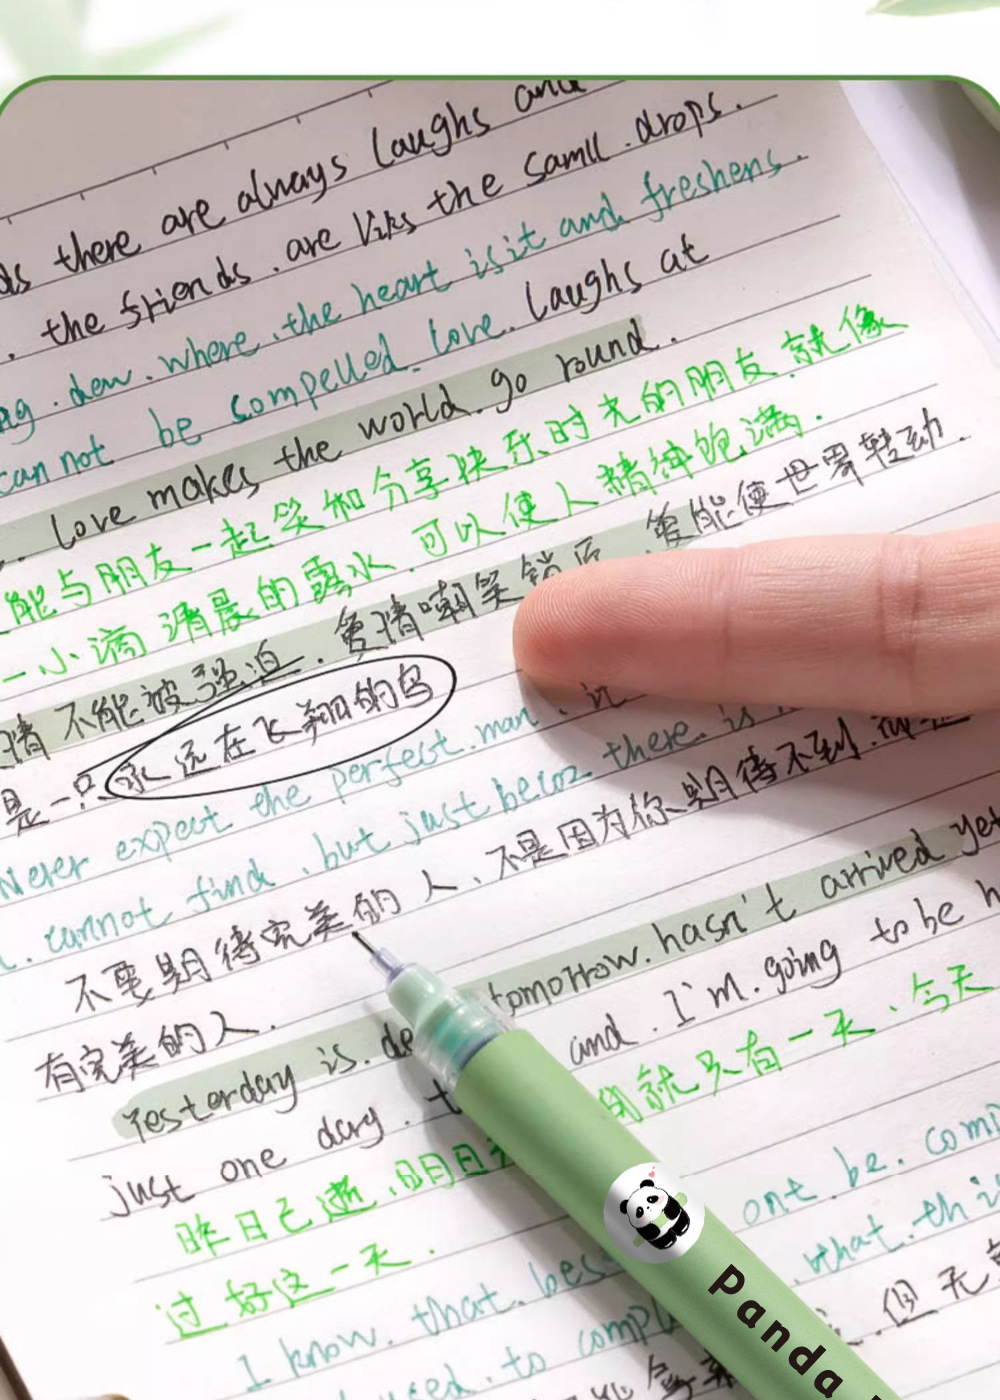 there are always laughs and
the friends. are likes the samll. drops.
dew. where. the heart is it and freshens.
cannot be compelled. love. laughs at
love makes the world. go round.
能与朋友一起笑和分享快乐时光的朋友.就像
一小滴清晨的露水.可以使人精神饱满.
情不能被强迫.爱情嘲笑锁后.爱能使世界转动.
是一只永远在飞翔的鸟
Never expect the perfect.man.
cannot find.but just becoz there is
不要期待完美的人、不是因为你期待不到.
有完美的人.
Yesterday is. tomorrow.hasn't arrived yet
just one day. and. I'm.going to be
昨日已逝.明日 就只有一天.今天
过好这一天.
I know.that. be.
to what.
但无
Panda